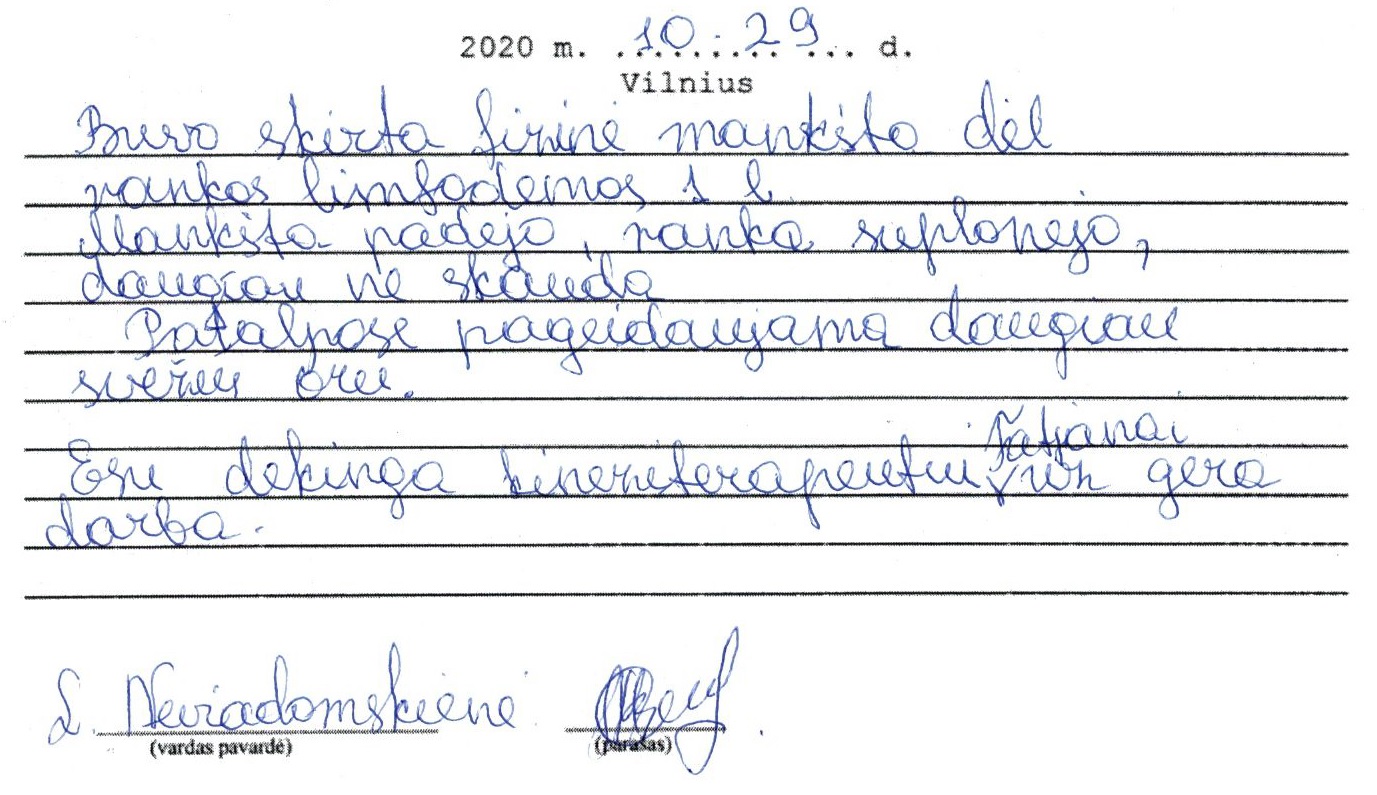 2020 m. 10.29 d.
Vilnius
Buvo skirta fizinė mankšta dėl
rankos limfodemos 1 l.
Mankšta padėjo, ranka suplonėjo,
daugiau ne skauda
Patalpose pageidaujama daugiau
svežiu oru.
Esu dekinga kineziterapeutui Tatjanai už gera
darba.
L. Neviadomskienė
(vardas pavardė) (parašas)